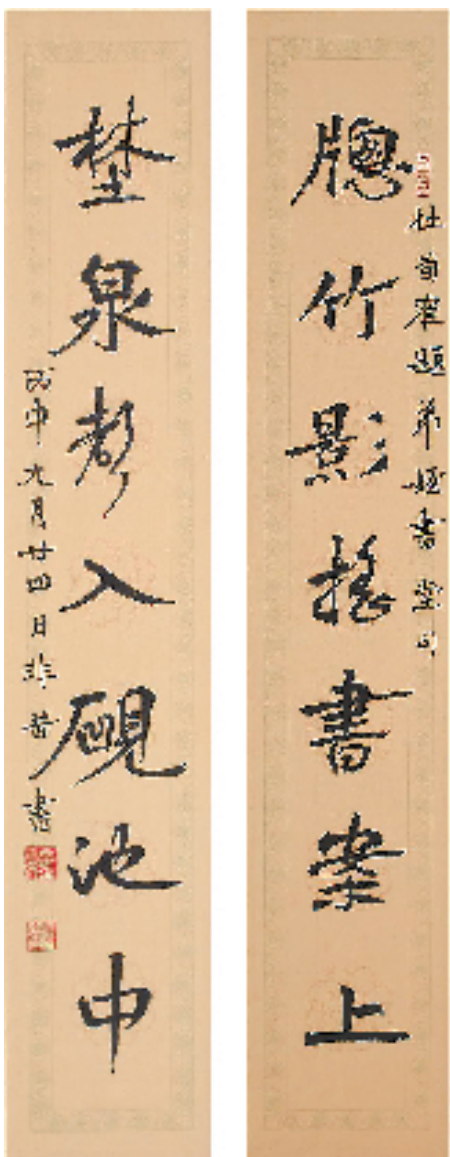 牕竹影搖書案上
杜荀隺題弟姪書堂句
埜泉聲入硯池中
戊申九月廿四日非書